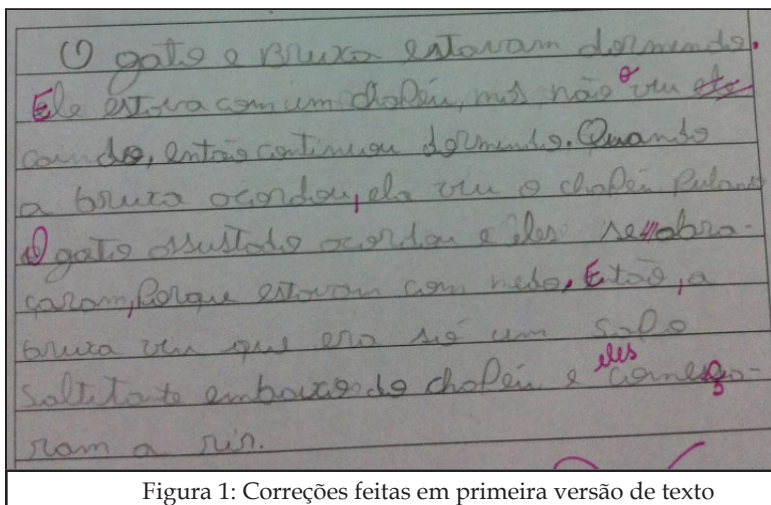 O gato e Bruxa estavam dormindo.
Ele estava com um chapéu, mas não o viu ele
caindo, então continuou dormindo. Quando
a bruxa acordou, ela viu o chapéu pulando
O gato assustado acordou e eles se abra-
çaram, Porque estavam com medo. Etão, a
bruxa viu que era só um sapo
saltitante embaixo do chapéu e eles começa-
ram a rir.
Figura 1: Correções feitas em primeira versão de texto